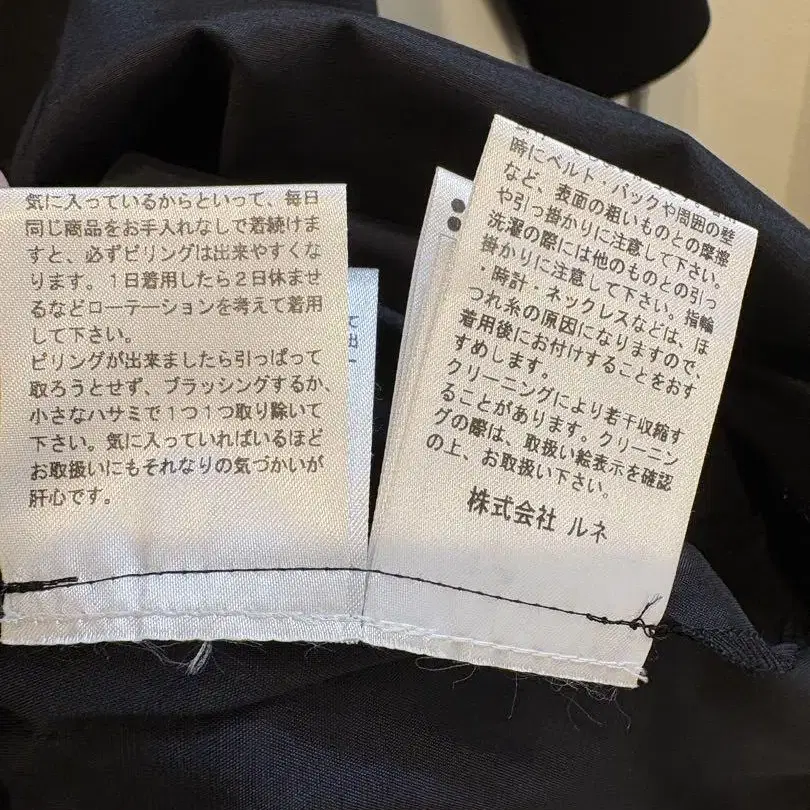 気に入っているからといって、毎日
同じ商品をお手入れなしで着続けま
すと、必ずピリングは出来やすくな
ります。1日着用したら2日休ませ
るなどローテーションを考えて着用
して下さい。
ピリングが出来ましたら引っぱって
取ろうとせず、ブラッシングするか、
小さなハサミで1つ1つ取り除いて
下さい。気に入っていればいるほど
お取扱いにもそれなりの気づかいが
肝心です。
て
出
時にベルト・バックや周囲の壁
など、表面の粗いものとの摩擦
や引っ掛かりに注意して下さい。
洗濯の際には他のものとの引っ
掛かりに注意して下さい。指輪
・時計・ネックレスなどは、ほ
つれ糸の原因になりますので、
着用後にお付けすることをおす
すめします。
クリーニングにより若干収縮す
ることがあります。クリーニン
グの際は、取扱い絵表示を確認
の上、お取扱い下さい。
株式会社 ルネ